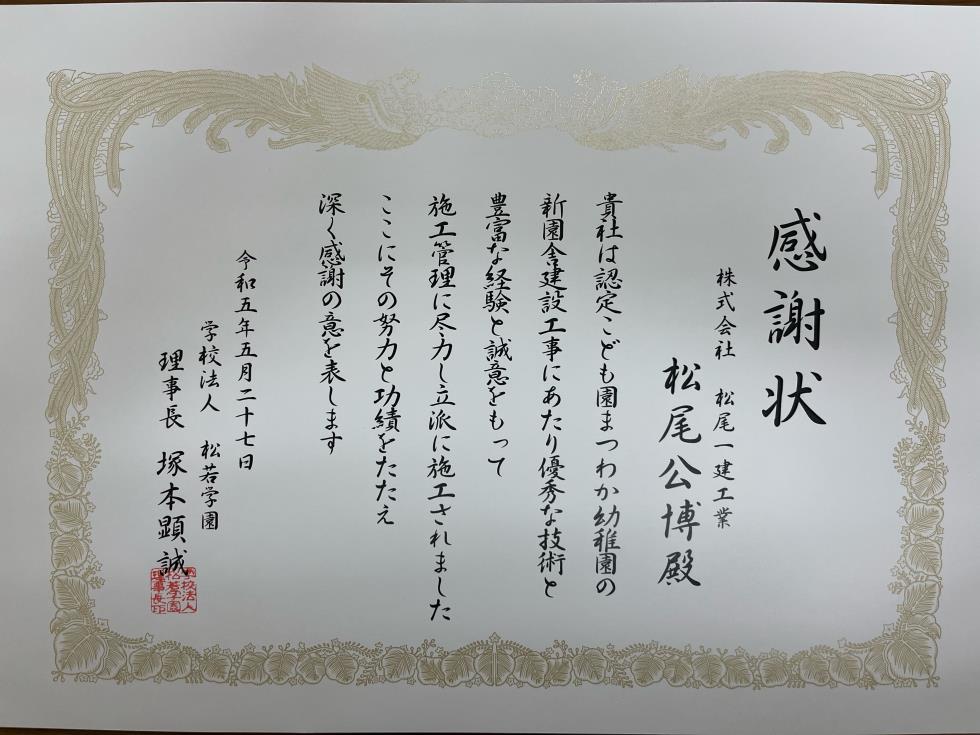 感謝状
株式会社 松尾一建工業
松尾公博殿
貴社は認定こども園まつわか幼稚園の
新園舎建設工事にあたり優秀な技術と
豊富な経験と誠意をもって
施工管理に尽力し立派に施工されました
ここにその努力と功績をたたえ
深く感謝の意を表します
令和五年五月二十七日
学校法人 松若学園
理事長 塚本顕誠
学校法人
松若学園
理事長印